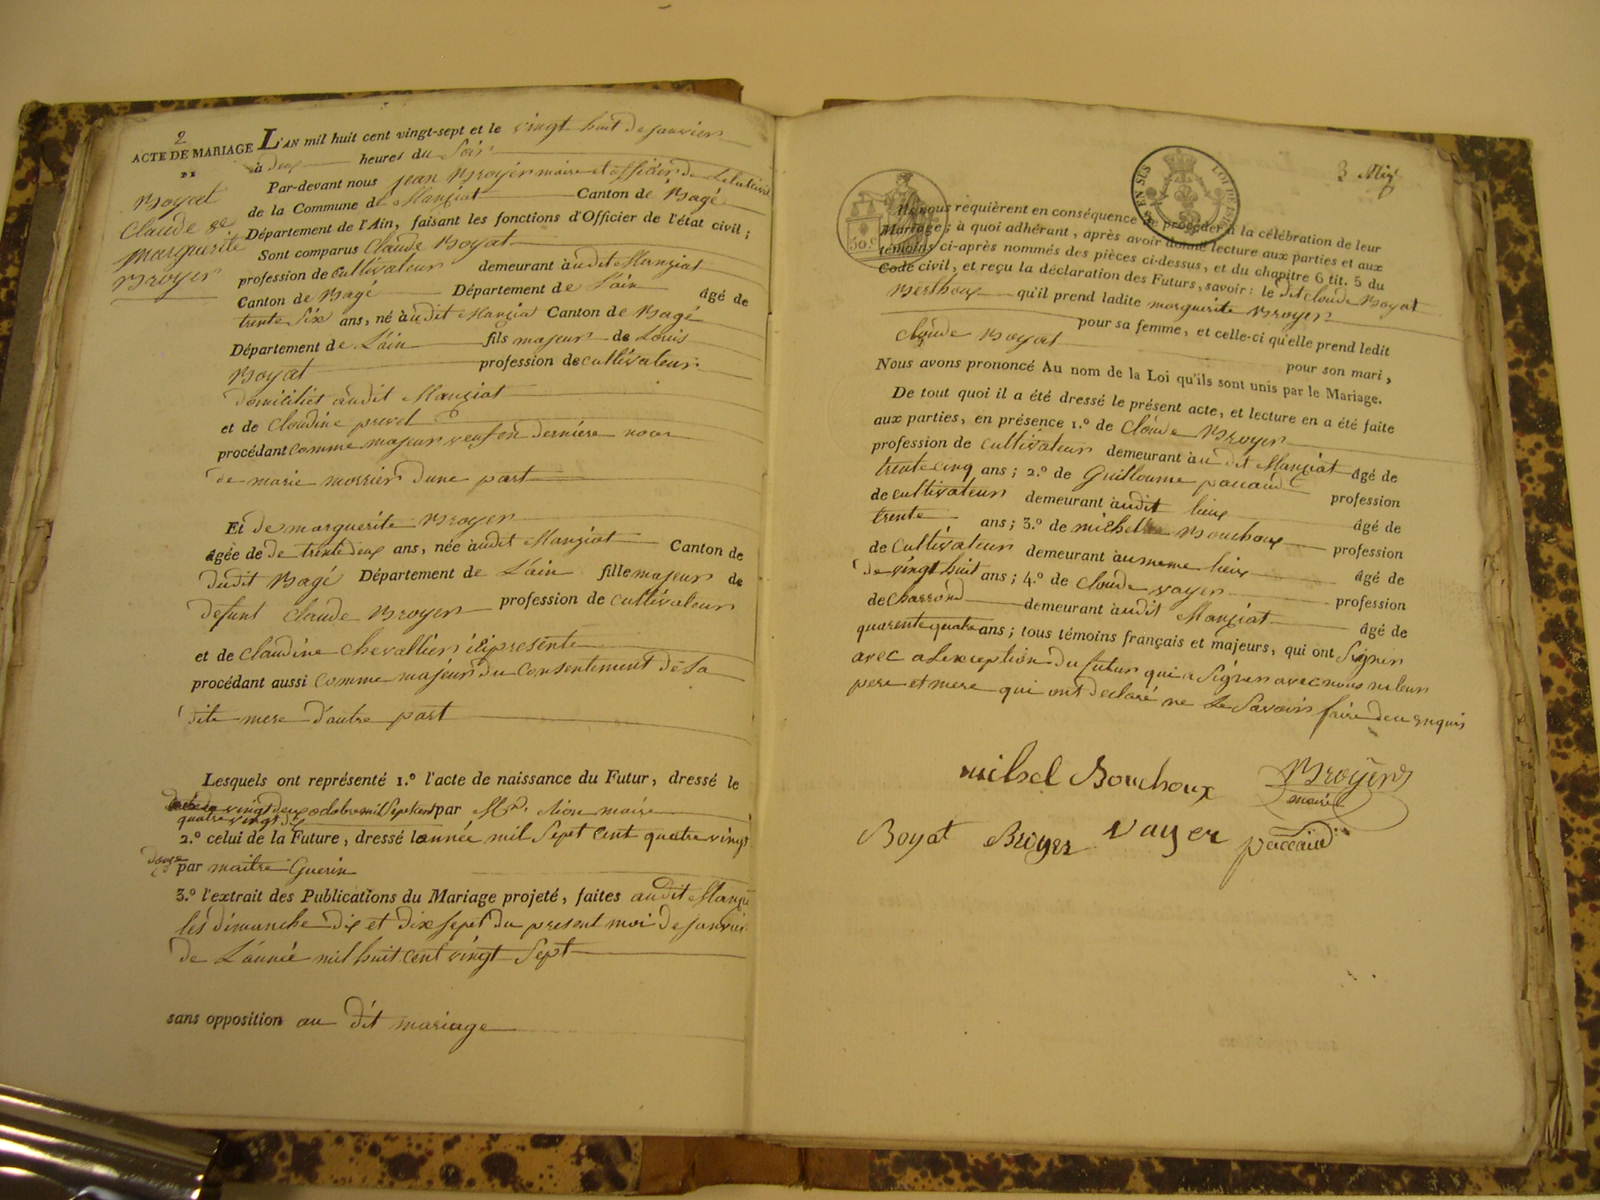 2
ACTE DE MARIAGE
DE
Boyat
Claude &
marguerite
Broyer
L'AN mil huit cent vingt-sept et le vingt huit de janvier
à deux heures du Soir
Par-devant nous jean Broyer maire et officier de Letat civil
de la Commune de Manziat Canton de Bagé
Département de l'Ain, faisant les fonctions d'Officier de l'état civil ;
Sont comparus Claude Boyat
profession de cultivateur demeurant audit Manziat
Canton de Bagé Département de L'ain âgé de
trente Six ans, né audit Manziat Canton de Bagé
Département de L'ain fils majeur de Louis
Boyat profession de cultivateur
domicilié audit Manziat
et de Claudine
procédant comme majeur veuf en derniere noce
de marie morrier d'une part
Et de marguerite Broyer
âgée de de trente deux ans, née audit Manziat Canton de
dudit Bagé Département de L'ain fille majeur de
defunt Claude Broyer profession de cultivateur
et de Claudine Chevallier ici presente
procédant aussi comme majeur du consentement de sa
dite mere d'autre part
Lesquels ont représenté 1.º l'acte de naissance du Futur, dressé le
vingt deux octobre mil sept cent par maire
quatre vingt dix
2.º celui de la Future, dressé lannée mil Sept Cent quatre vingt
par maitre Guerin
3.º l'extrait des Publications du Mariage projeté, faites audit Manziat
les dimanche dix et dix sept du present moi de janvier
de L'année mil huit cent vingt Sept
sans opposition au dit mariage
3
30.c
ENS
LOI DE
Ils nous requièrent en conséquence de procéder à la célébration de leur
Mariage ; à quoi adhérant, après avoir donné lecture aux parties et aux
témoins ci-après nommés des pièces ci-dessus, et du chapitre 6 tit. 5 du
Code civil, et reçu la déclaration des Futurs, savoir : le dit claude Boyat
qu'il prend ladite marguerite Broyer
pour sa femme, et celle-ci qu'elle prend ledit
claude Boyat pour son mari,
Nous avons prononcé Au nom de la Loi qu'ils sont unis par le Mariage.
De tout quoi il a été dressé le présent acte, et lecture en a été faite
aux parties, en présence 1.º de Claude Broyer
profession de cultivateur demeurant au dit Manziat âgé de
trente cinq ans ; 2.º de Guillaume paccaud profession
de cultivateur demeurant audit lieux âgé de
trente ans ; 3.º de michel Bouchoux profession
de cultivateur demeurant au meme lieux âgé de
de vingt huit ans ; 4.º de Claude vayer profession
de demeurant audit Manziat âgé de
quarente quatre ans ; tous témoins français et majeurs, qui ont Signer
avec a Lexception du futur qui a Signer avec nous ni leur
pere et mere qui ont declaré ne Le Savoir faire de ce enquis
michel Bouchoux Broyer
maire
Boyat Broyer vayer paccaud